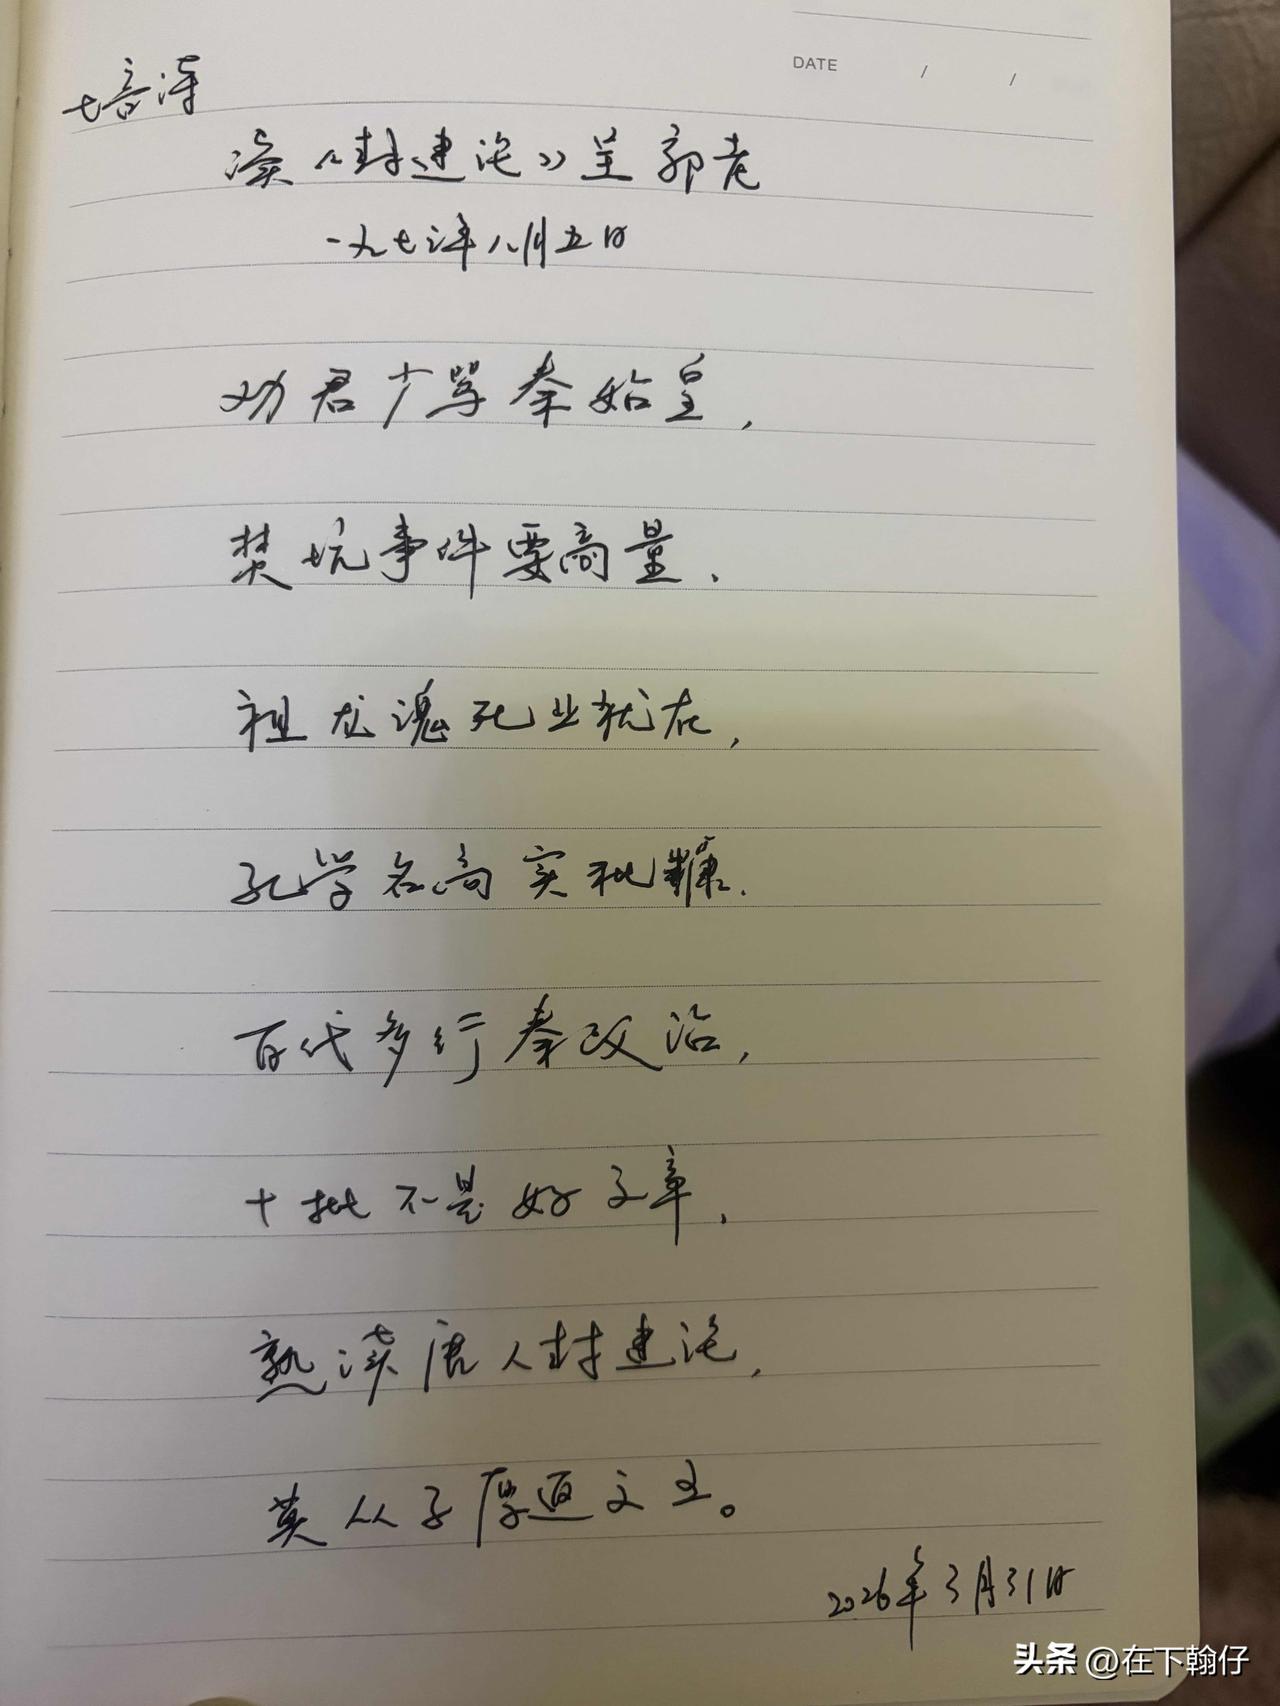 DATE / /
读《封建论》呈郭老
一九七三年八月五日
劝君少骂秦始皇,
焚坑事件要商量.
祖龙魂死业犹在,
孔学名高实秕糠.
百代多行秦政治,
十批不是好文章.
熟读唐人封建论,
莫从子厚返文王。
2026年3月31日
头条 @在下翰仔